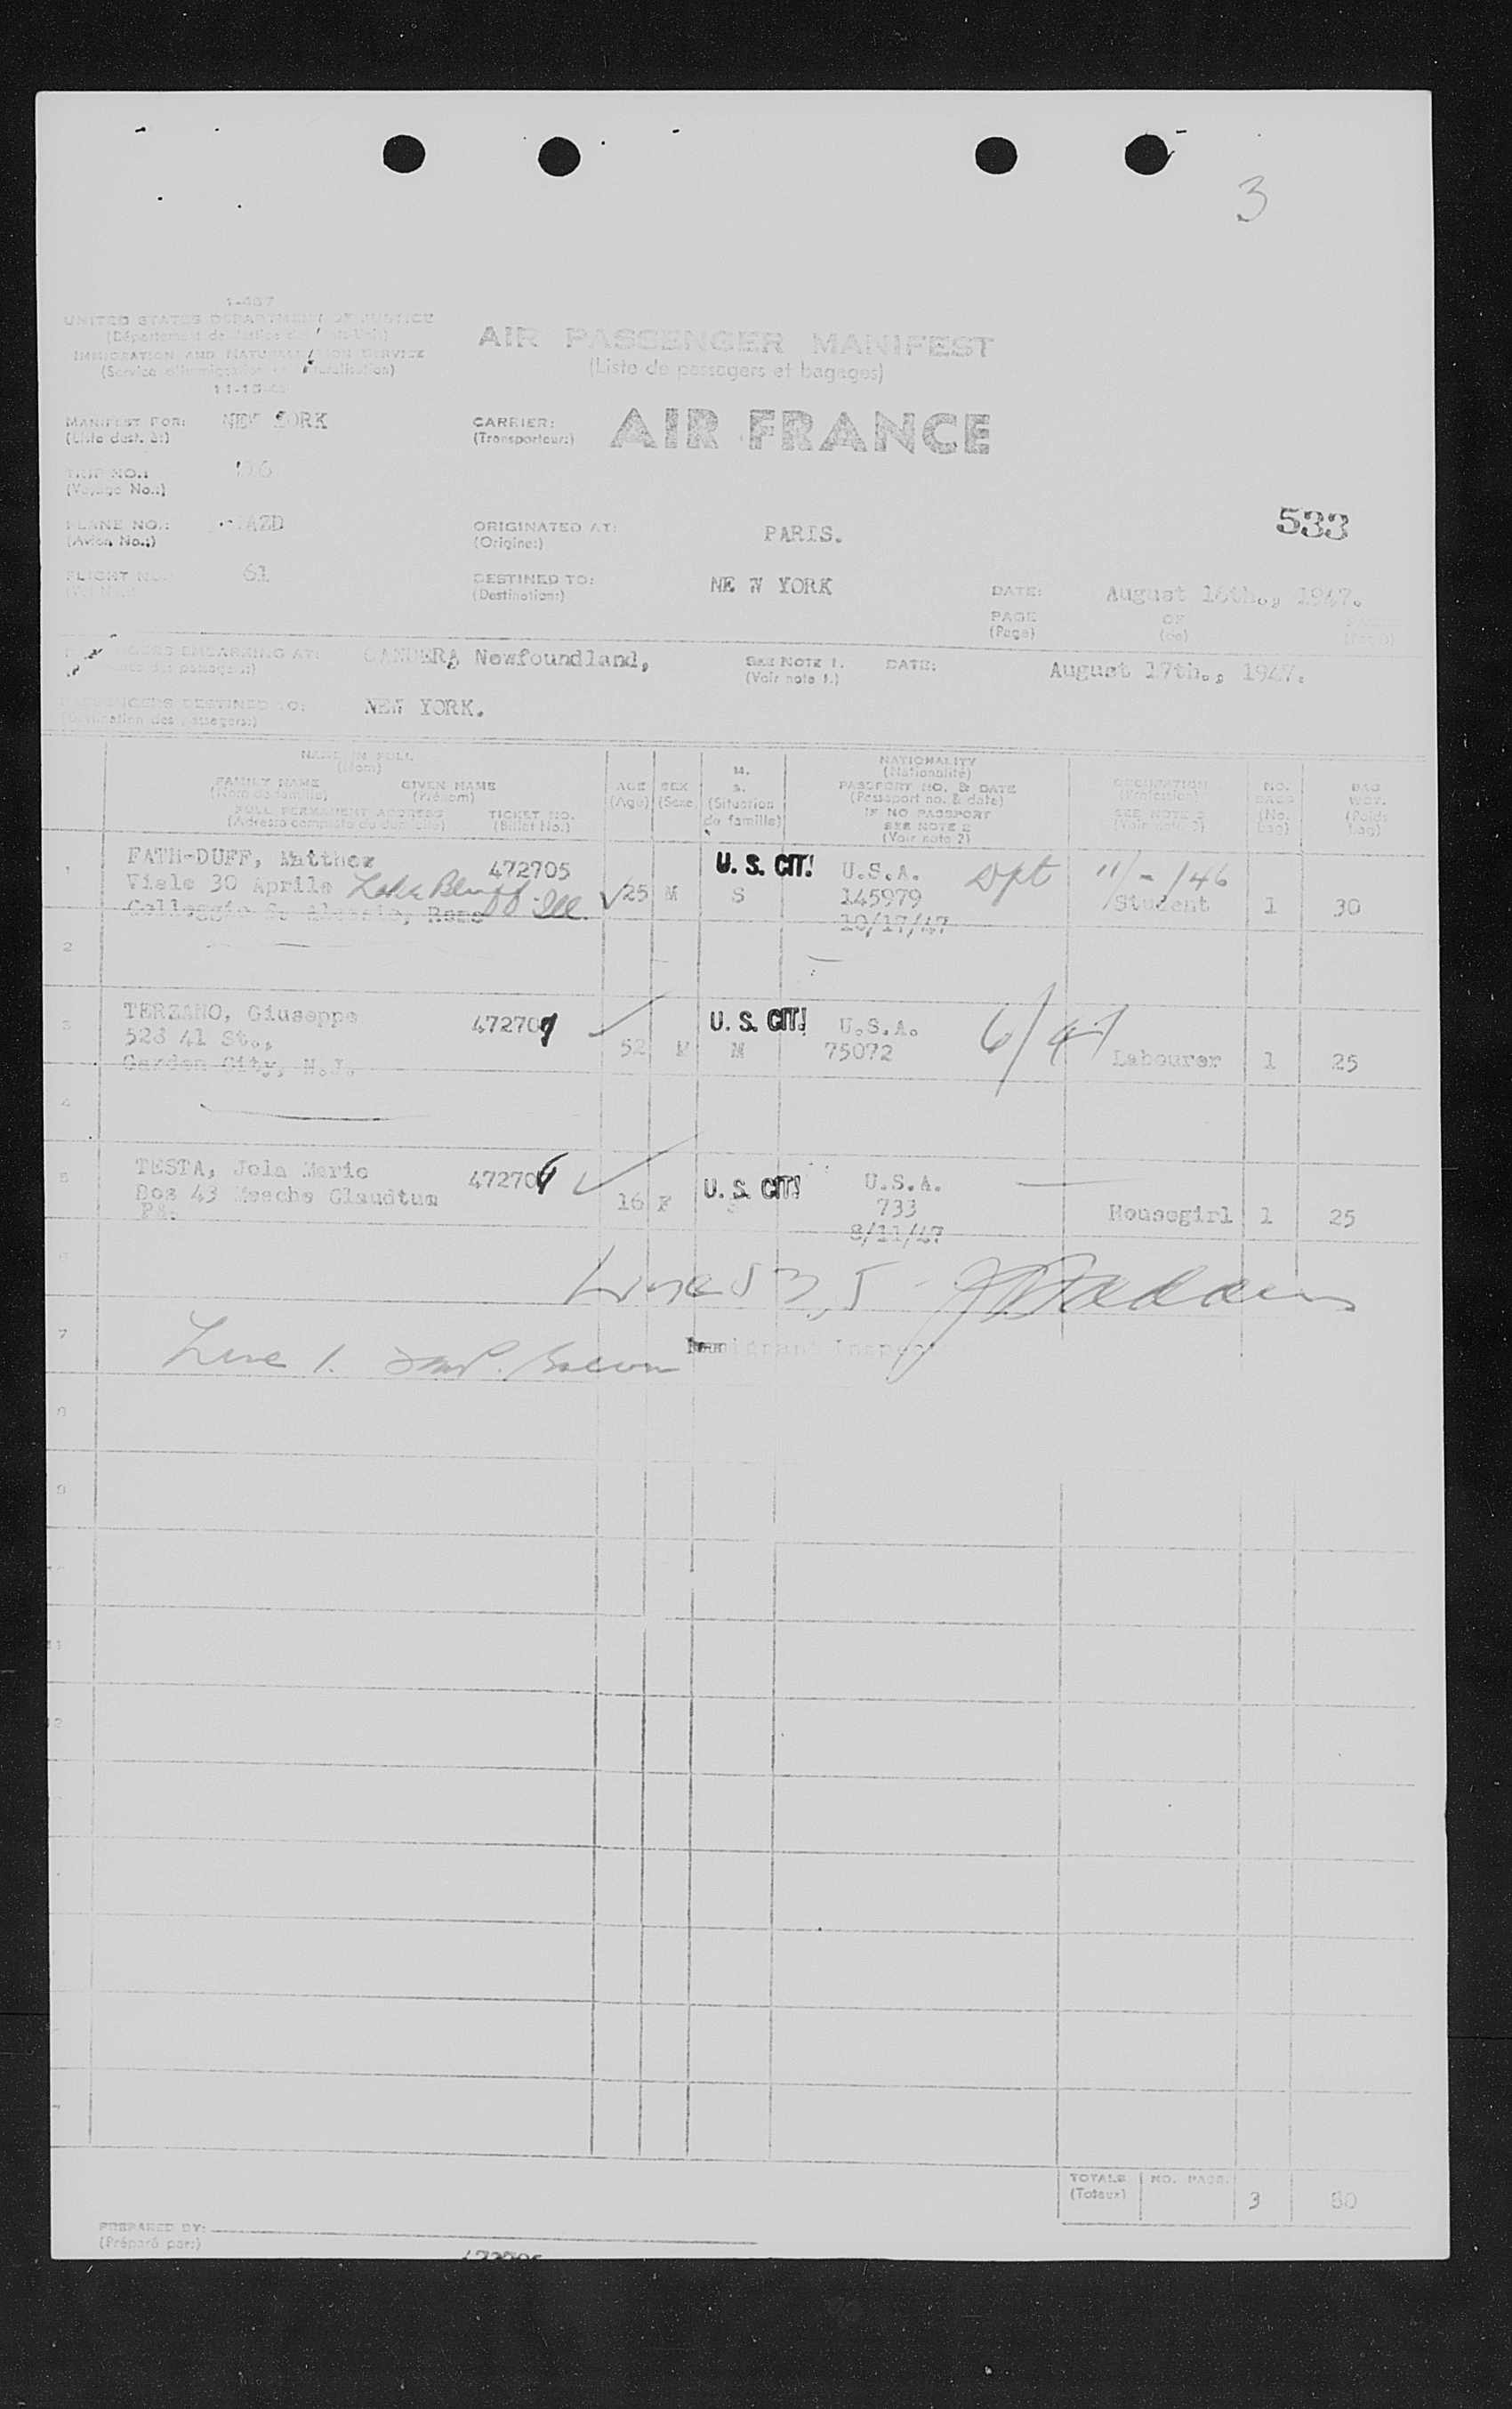 3
I-487
UNITED STATES DEPARTMENT OF JUSTICE
IMMIGRATION AND NATURALIZATION SERVICE
AIR PASSENGER MANIFEST
(Liste de passagers et bagages)
MANIFEST FOR: NEW YORK
(Liste dest. à:)
CARRIER: AIR FRANCE
(Transporteur:)
TRIP NO.:
(Voyage No.:)
PLANE NO.: AZD
(Avion No.:)
ORIGINATED AT: PARIS.
(Origine:)
533
FLIGHT NO. 61
DESTINED TO: NE W YORK
(Destination:)
DATE: August 16th., 1947.
PAGE OF
(Page) (de)
EMBARKING AT: GANDER, Newfoundland, SEE NOTE 1. DATE: August 17th., 1947.
(Voir note 1.)
PASSENGERS DESTINED TO: NEW YORK.
(Destination des passagers:)
NAME IN FULL
(Nom)
FAMILY NAME GIVEN NAME
(Nom de famille) (Prénom)
FULL PERMANENT ADDRESS TICKET NO.
(Adresse complète du domicile) (Billet No.)
AGE
(Age)
SEX
(Sexe)
M.
S.
(Situation
de famille)
NATIONALITY
(Nationalité)
PASSPORT NO. & DATE
(Passeport no. & date)
IF NO PASSPORT
SEE NOTE 2
(Voir note 2)
OCCUPATION
(Profession)
SEE NOTE 3
(Voir note 3)
NO.
BAGS
(No.
bag)
BAG
WGT.
(Poids
bag)
1 FATH-DUFF, Matthew 472705 U. S. CIT! U.S.A. 11/-/46
Viale 30 Aprile Lake Bluff Ill. 25 M S 145979 Student 1 30
Rome 10/17/47
2
3 TERZANO, Giuseppe 472707 U. S. CIT! U.S.A. 6/47
528 41 St., 52 M M 75072 Labourer 1 25
Garden City, N.J.
4
5 TESTA, Jola Marie 472704 U. S. CIT! U.S.A.
Box 43 16 F S 733 Housegirl 1 25
Pa. 8/11/47
6 Lines 3, 5 -
7 Line 1.
Immigrant Inspector
8
9
11
12
TOTALS NO. PASS. 3 80
(Totaux)
PREPARED BY:
(Préparé par:)